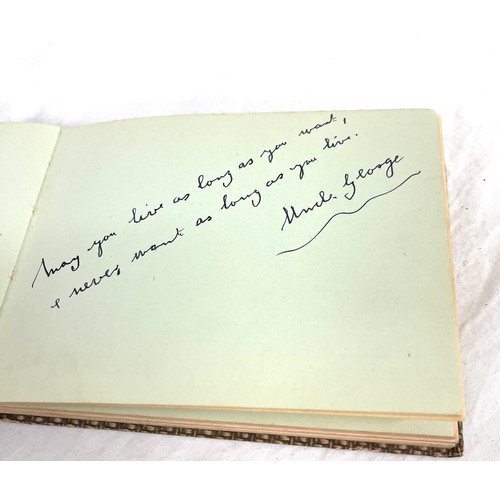 May you live as long as you want,
& never want as long as you live.
Uncle George